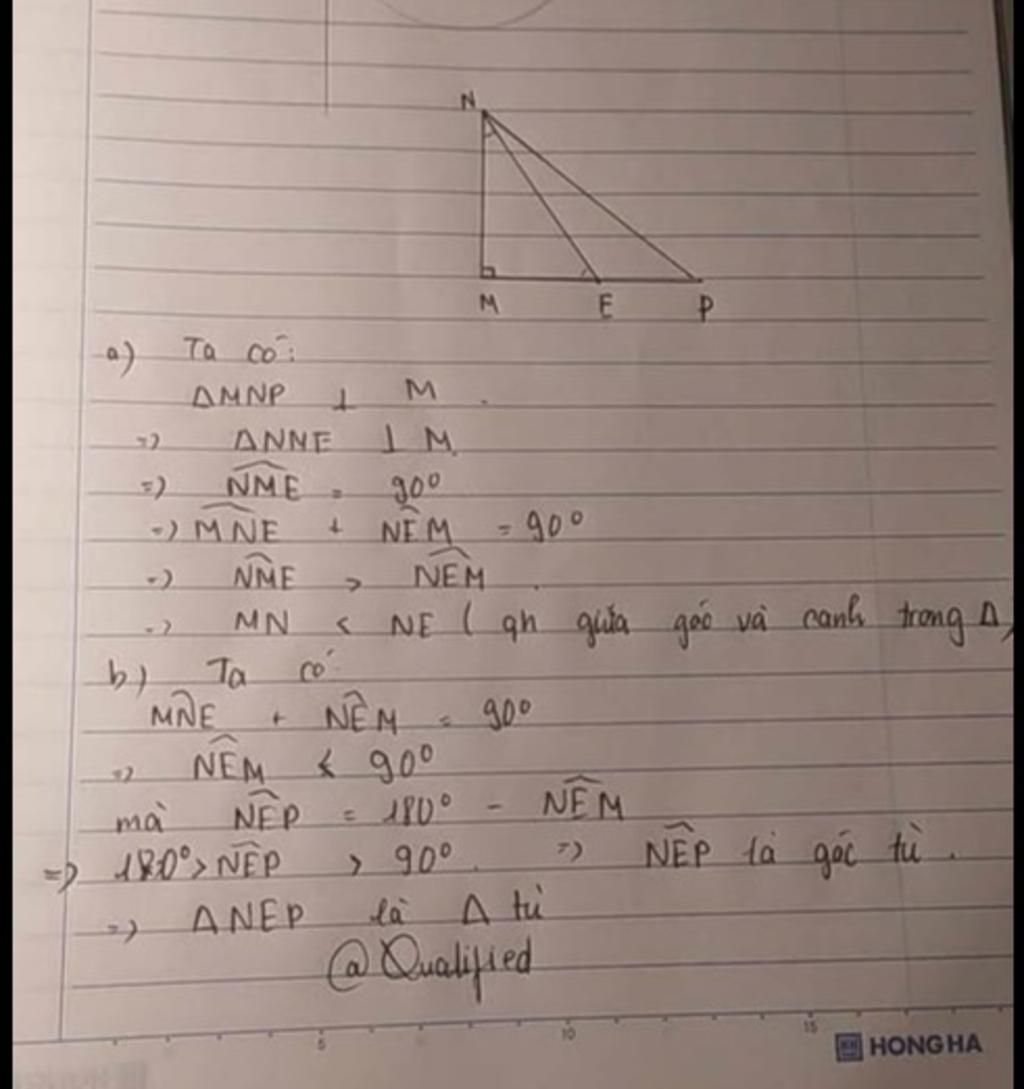 N
M E P
a) Ta có:
ΔMNP ⊥ M.
=> ΔNME ⊥ M.
=> NME = 90°
=> MNE + NEM = 90°
=> NME > NEM.
=> MN < NE ( qh giữa góc và cạnh trong Δ)
b) Ta có
MNE + NEM = 90°
=> NEM < 90°
mà NEP = 180° - NEM
=> 180° > NEP > 90°. => NEP là góc tù.
=> ΔNEP là Δ tù
@Qualified
5 10 15
HONG HA